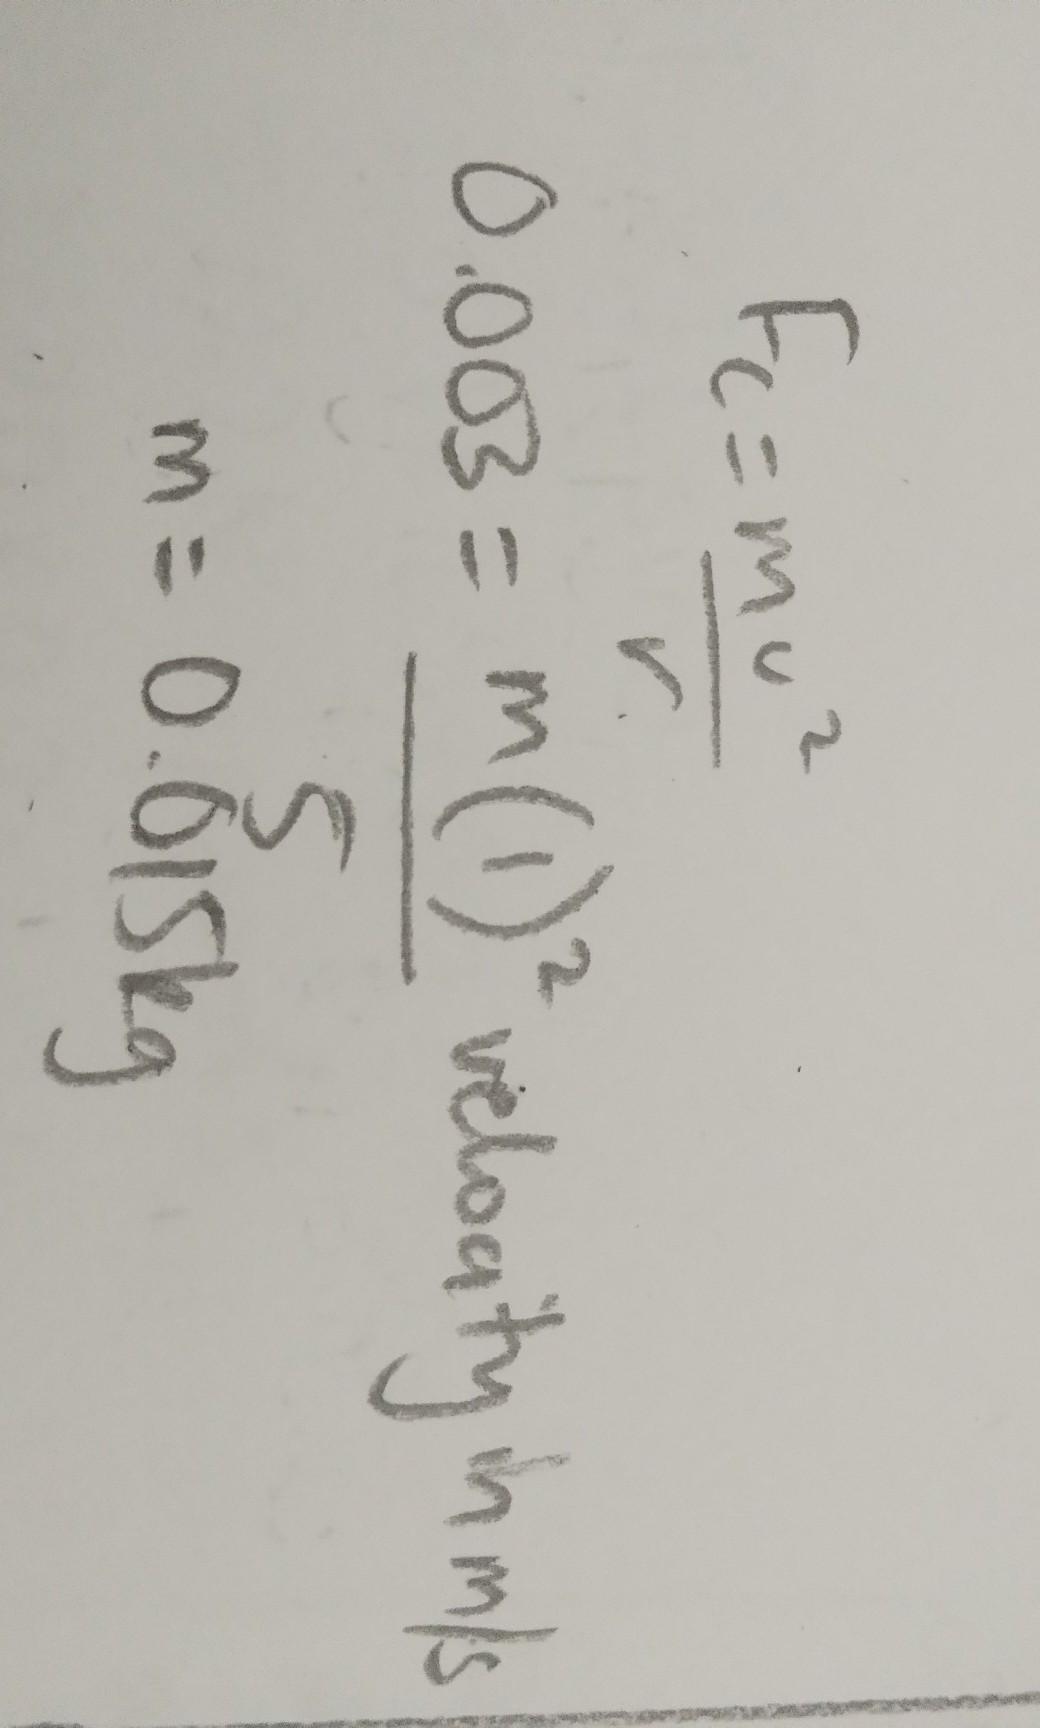 Fc = mv²
r
0.003 = m(1)² velocity in m/s
5
m = 0.615kg